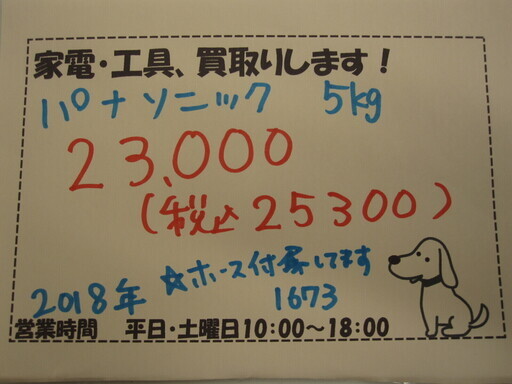 家電・工具、買取りします!
パナソニック 5kg
23,000
(税込25300)
☆ホース付属してます
2018年 1673
営業時間 平日・土曜日10:00～18:00